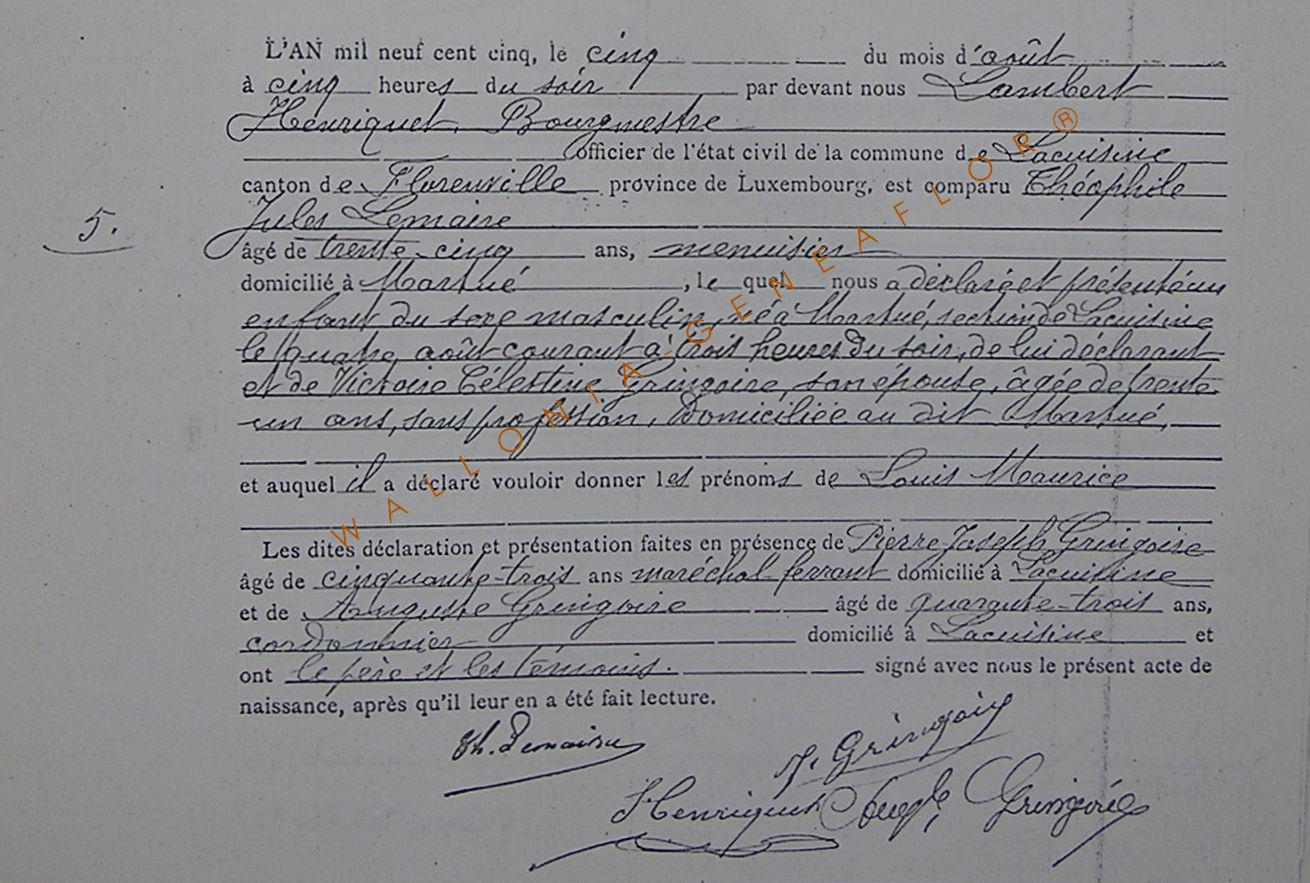 L'AN mil neuf cent cinq, le cinq du mois d'août
à cinq heures du soir par devant nous Lambert
Henriquet, Bourgmestre
officier de l'état civil de la commune de Lacuisine
canton de Florenville province de Luxembourg, est comparu Théophile
Jules Lemaire
5.
âgé de trente-cinq ans, menuisier
domicilié à Martué, le quel nous a déclaré et présenté un
enfant du sexe masculin, né à Martué, section de Lacuisine
le quatre août courant à trois heures du soir, de lui déclarant
et de Victoire Célestine Gringoire, son épouse, âgée de trente
un ans, sans profession, domiciliée au dit Martué,
et auquel il a déclaré vouloir donner les prénoms de Louis Maurice
Les dites déclaration et présentation faites en présence de Pierre Joseph Gringoire
âgé de cinquante-trois ans maréchal ferrant domicilié à Lacuisine
et de Auguste Gringoire âgé de quarante-trois ans,
cordonnier domicilié à Lacuisine et
ont le père et les témoins. signé avec nous le présent acte de
naissance, après qu'il leur en a été fait lecture.
Th. Lemaire
J. Gringoire
Henriquet Gringoire
WALLONIA GENEAFLOR®